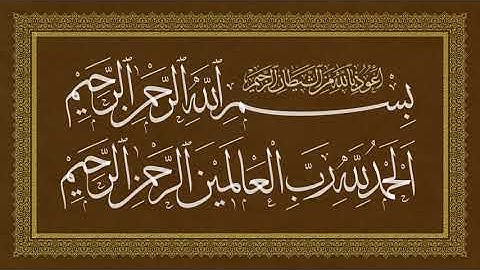 اعوذ بالله من الشیطان الرجیم
بِسْمِ ٱللهِ ٱلرَّحْمٰنِ ٱلرَّحِيْمِ
اَلْحَمْدُ لِلّٰهِ رَبِّ ٱلْعَالَمِيْنَ ٱلرَّحْمٰنِ ٱلرَّحِيْمِ